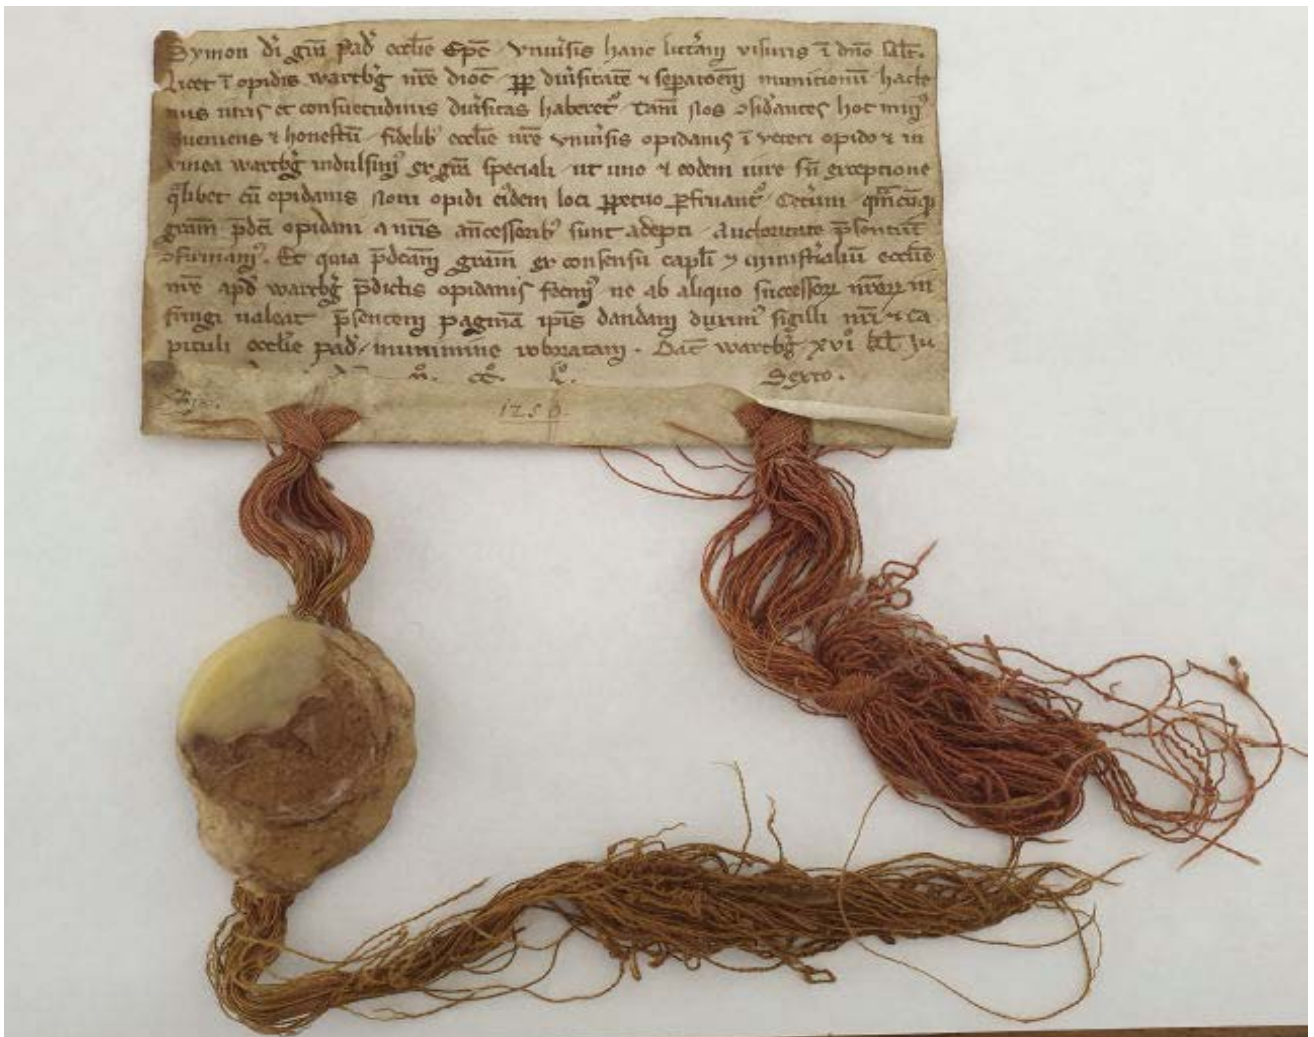 Symon di gra pad ecclie Epc vnuisis hanc littam visuris i dno salt.
Licet i opidis wartbg nre dioc pp diuisitate ⁊ sepatoem municionu hacte
nus iuris et consuetudinis diuisitas haberet tam nos ↄsidantes hoc min
ↄueniens ⁊ honestu fidelib ecclie nre vnuisis opidanis i veteri opido ⁊ in
vinea wartbg indulsim ex gra speciali ut uno ⁊ eodem iure sn exceptione
qlibet cu opidanis Noui opidi eidem loci ppetuo pfruant Ceterum qmcuqz
gram pdci opidani a nris ancessorib sunt adepti auctoritate psentiu
ↄfirmam. Et quia pdcam gram ex consensu capli ⁊ ministialiu ecclie
nre apd wartbg pdictis opidanis fecim ne ab aliquo successorz nrorz in
fringi ualeat psentem paginam ipis dandam duxim sigilli nri ⁊ Ca
pituli ecclie pad munimine roboratam. Dat wartbg xvi kl Ju
m. cc. l. Sexto.
1256.